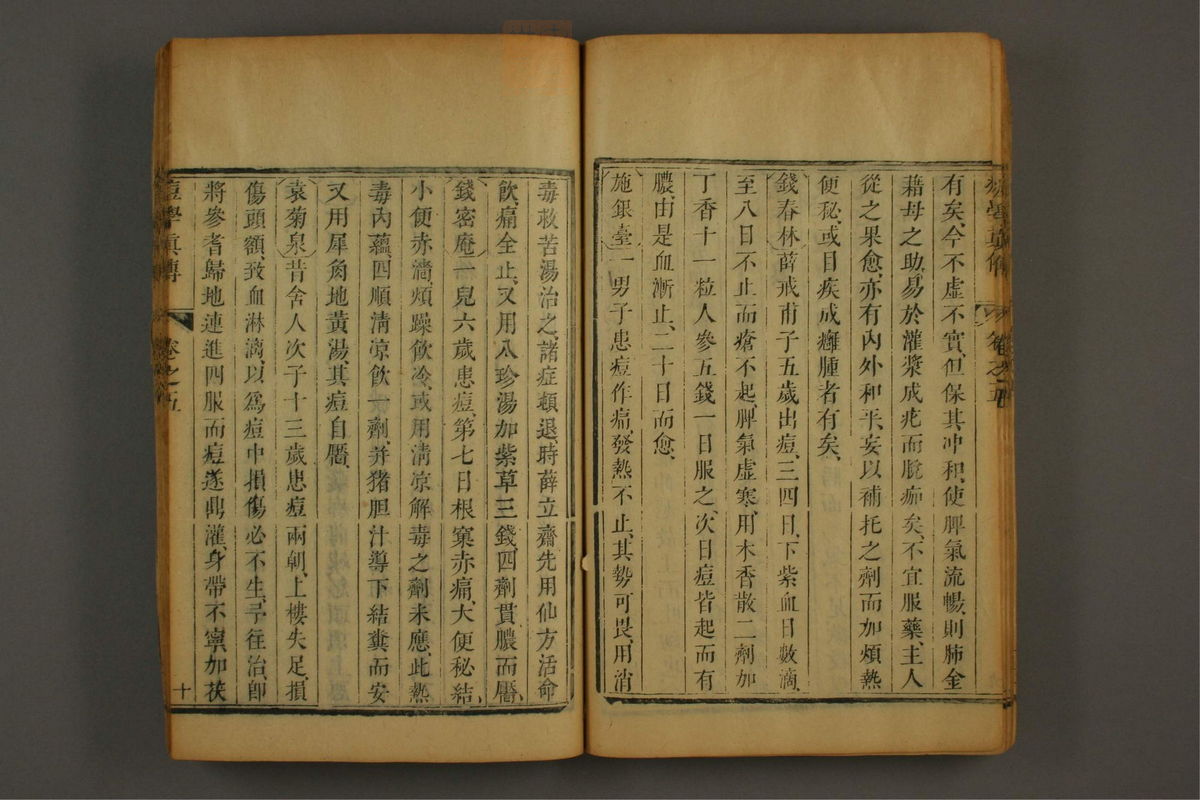 痘學眞傳 卷之五
有矣、今不虛不實、但保其冲和、使脾氣流暢、則肺金
藉母之助、易於灌漿成疕而脫痂矣、不宜服藥、主人
從之果愈、亦有內外和平、妄以補托之劑而加煩熱
便秘、或目疾成癰腫者有矣、
錢春林 薛戒甫子五歲出痘、三四日、下紫血日數滴、
至八日不止而瘡不起、脾氣虛寒、用木香散二劑加
丁香十一粒人參五錢一日服之、次日痘皆起而有
膿、由是血漸止、二十日而愈、
施銀臺 一男子患痘作痛、發熱不止、其勢可畏、用消
毒救苦湯治之、諸症頓退、時薛立齋先用仙方活命
飲、痛全止、又用八珍湯加紫草三錢、四劑貫膿而靨、
錢密庵 一兒六歲患痘、第七日根窠赤痛、大便秘結、
小便赤濇、煩躁飲冷、或用清凉解毒之劑未應、此熱
毒內蘊、四順清凉飲一劑、并猪胆汁導下結糞而安
又用犀角地黃湯其痘自靨、
袁菊泉 昔舍人次子十三歲患痘兩朝、上樓失足、損
傷頭額、致血淋漓、以爲痘中損傷必不生、予往治、卽
將參耆歸地連進四服而痘遂鼎灌、身帶不寧加茯
痘學眞傳 卷之五 十